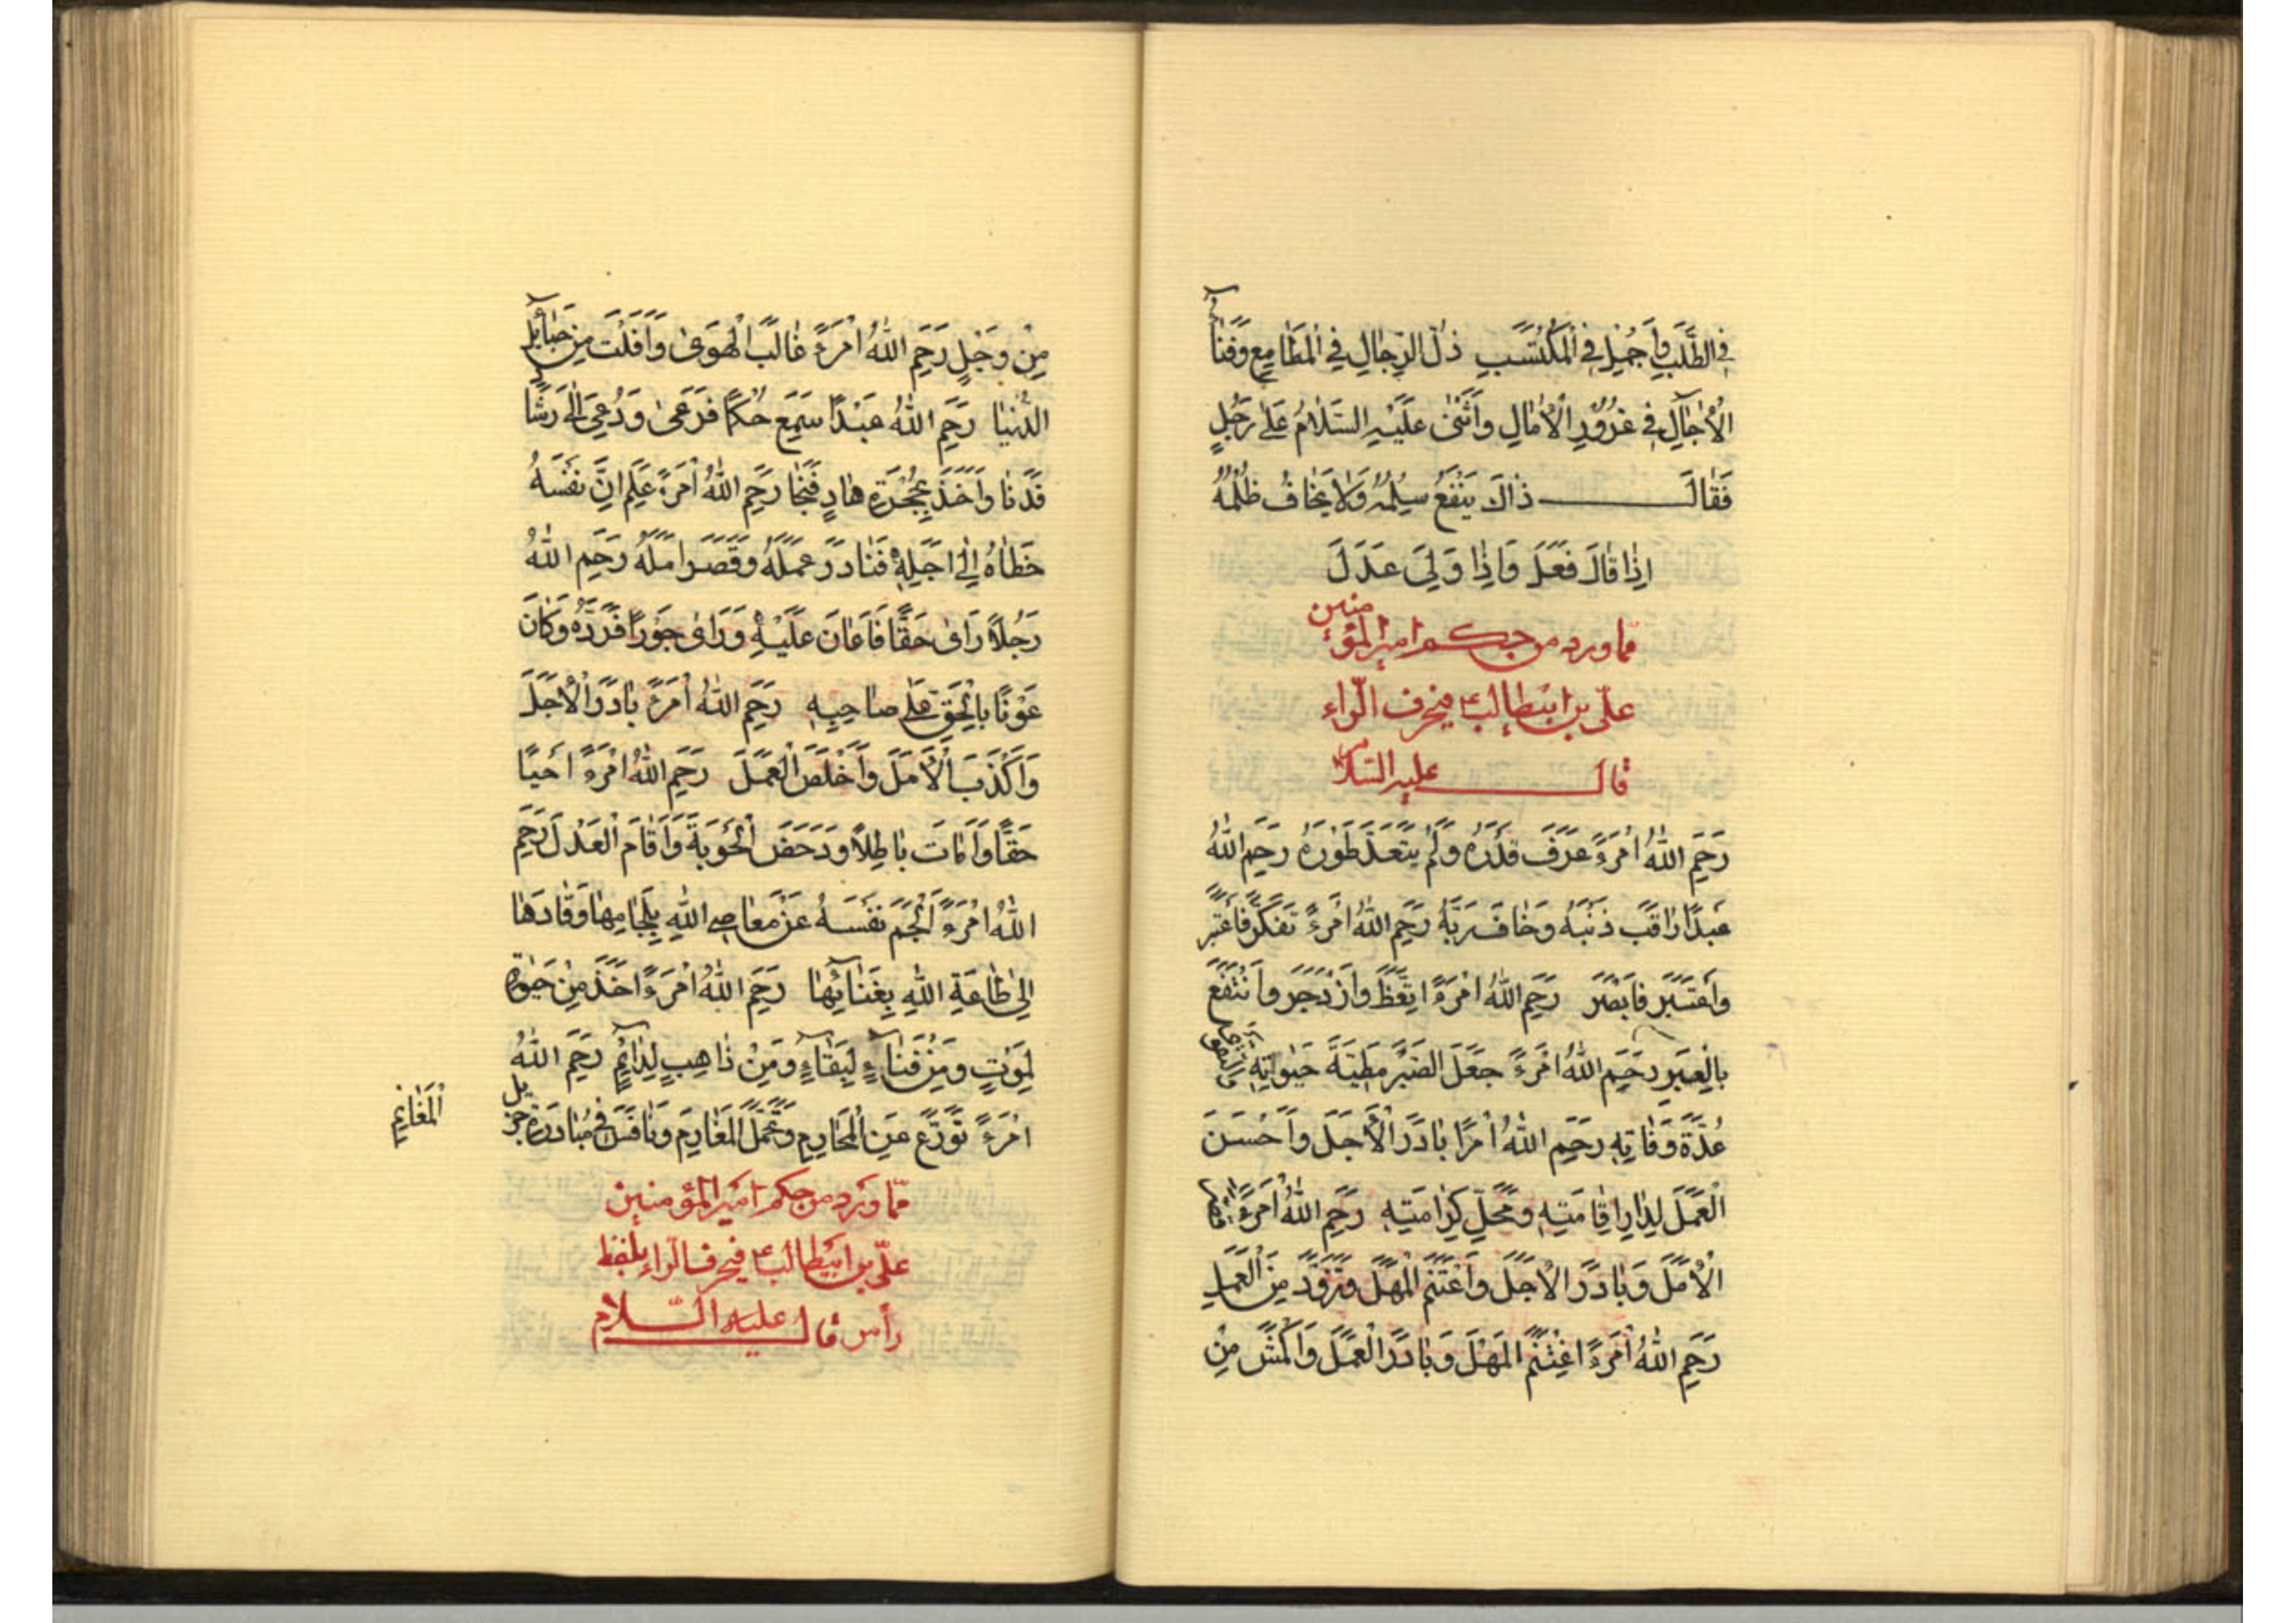 فِى الطَّلَبِ وَاَجْمِلْ فِى الْمُكْتَسَبِ ذُلُّ الرِّجٰالِ فِى الْمَطٰامِعِ وَفَنٰآءُ
الْاٰجٰالِ فِى غُرُوُرِ الْاٰمٰالِ وَاَثْنىٰ عَلَيْهِ السَّلٰامُ عَلىٰ رَجُلٍ
فَقٰالَ ذٰاكَ يَنْفَعُ سِلْمُهُ وَلاٰ يُخٰافُ ظُلْمُهُ
اِذٰا قٰالَ فَعَلَ وَاِذٰا وَلِىَ عَدَلَ
مما ورد من حكم امير المؤمنين
علىّ بن ابيطالب ع فى حرف الرّاء
قال عليه السّلام
رَحِمَ اللّٰهُ امْرَءً عَرَفَ قَدْرَهُ وَلَمْ يَتَعَدَّ طَوْرَهُ رَحِمَ اللّٰهُ
عَبْدًا رٰاقَبَ ذَنْبَهُ وَخٰافَ رَبَّهُ رَحِمَ اللّٰهُ امْرَءً تَفَكَّرَ فَاعْتَبَرَ
وَاعْتَبَرَ فَاَبْصَرَ رَحِمَ اللّٰهُ امْرَءً اتَّعَظَ وَازْدَجَرَ وَانْتَفَعَ
بِالْعِبَرِ رَحِمَ اللّٰهُ امْرَءً جَعَلَ الصَّبْرَ مَطِيَّةَ حَيٰوتِهِ وَالتَّقْوىٰ
عُدَّةَ وَفٰاتِهِ رَحِمَ اللّٰهُ امْرًا بٰادَرَ الْاَجَلَ وَاَحْسَنَ
الْعَمَلَ لِدٰارِ اِقٰامَتِهِ وَمَحَلِّ كَرٰامَتِهِ رَحِمَ اللّٰهُ امْرَءً
الْاَمَلَ وَبٰادَرَ الْاَجَلَ وَاغْتَنَمَ الْمَهَلَ وَتَزَوَّدَ مِنَ الْعَمَلِ
رَحِمَ اللّٰهُ امْرَءً اغْتَنَمَ الْمَهَلَ وَبٰادَرَ الْعَمَلَ وَاَكْمَشَ مِنْ
مِنْ وَجَلٍ رَحِمَ اللّٰهُ امْرَءً غٰالَبَ الْهَوىٰ وَاَفْلَتَ مِنْ حَبٰآئِلِ
الدُّنْيٰا رَحِمَ اللّٰهُ عَبْدًا سَمِعَ حُكْمًا فَوَعىٰ وَدُعِىَ اِلىٰ رَشٰادٍ
فَدَنٰا وَاَخَذَ بِحُجْزَةِ هٰادٍ فَنَجٰا رَحِمَ اللّٰهُ امْرَءً عَلِمَ اَنَّ نَفَسَهُ
خُطٰاهُ اِلىٰ اَجَلِهِ فَبٰادَرَ عَمَلَهُ وَقَصَّرَ اَمَلَهُ رَحِمَ اللّٰهُ
رَجُلاً رَاىٰ حَقًّا فَاَعٰانَ عَلَيْهِ وَرَاىٰ جَوْرًا فَرَدَّهُ وَكٰانَ
عَوْنًا بِالْحَقِّ عَلىٰ صٰاحِبِهِ رَحِمَ اللّٰهُ امْرَءً بٰادَرَ الْاَجَلَ
وَاَكْذَبَ الْاَمَلَ وَاَخْلَصَ الْعَمَلَ رَحِمَ اللّٰهُ امْرَءً اَحْيٰا
حَقًّا وَاَمٰاتَ بٰاطِلاً وَدَحَضَ الْجَوْرَ وَاَقٰامَ الْعَدْلَ رَحِمَ
اللّٰهُ امْرَءً اَلْجَمَ نَفْسَهُ عَنْ مَعٰاصِى اللّٰهِ بِلِجٰامِهٰا وَقٰادَهٰا
اِلىٰ طٰاعَةِ اللّٰهِ بِعِنٰانِهٰا رَحِمَ اللّٰهُ امْرَءً اَخَذَ مِنْ حَيٰوةٍ
لِمَوْتٍ وَمِنْ فَنٰآءٍ لِبَقٰاءٍ وَمِنْ ذٰاهِبٍ لِدٰآئِمٍ رَحِمَ اللّٰهُ
امْرَءً تَوَرَّعَ عَنِ الْمَحٰارِمِ وَتَحَمَّلَ الْمَغٰارِمَ وَنٰافَسَ فِى مُبٰادَرَةِ جَزِيلِ
الْمَغٰانِمِ
ممّا ورد من حكم امير المؤمنين
علىّ بن ابيطالب ع فى حرف الرّاء بلفظ
رأس قال عليه السّلام